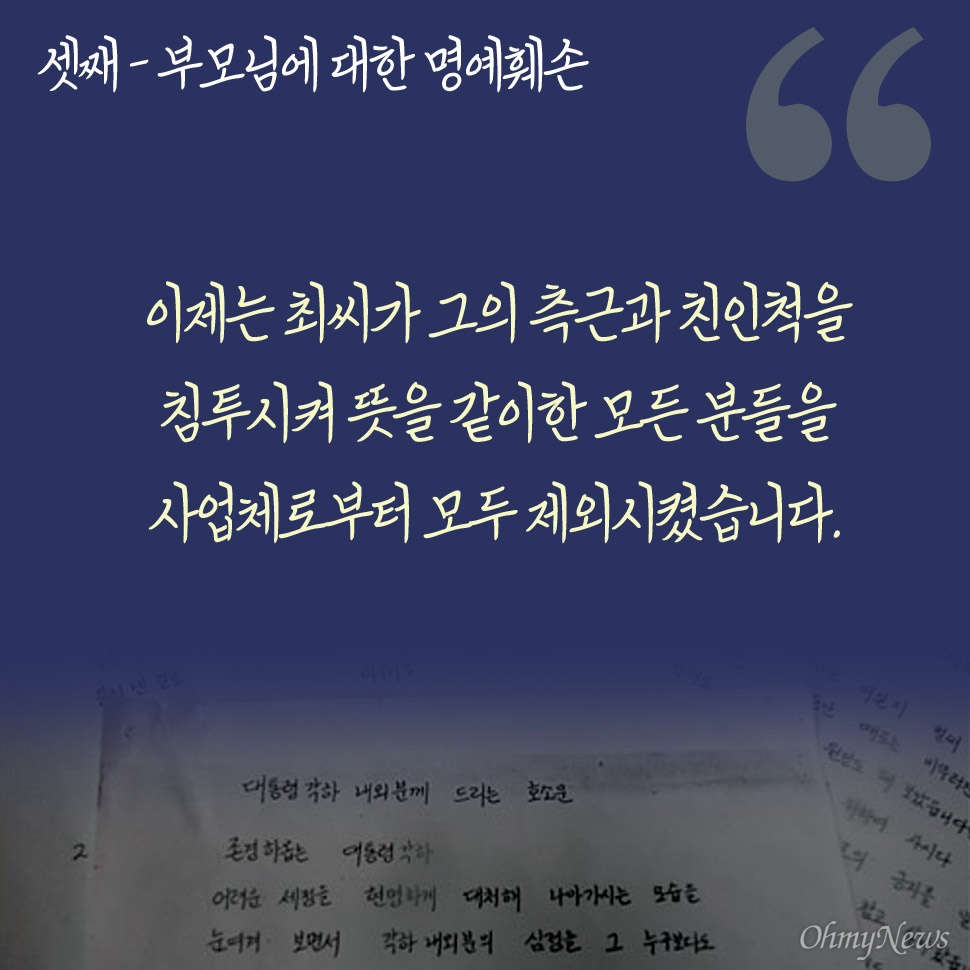 셋째 - 부모님에 대한 명예훼손
이제는 최씨가 그의 측근과 친인척을
침투시켜 뜻을 같이한 모든 분들을
사업체로부터 모두 제외시켰습니다.
대통령 각하 내외분께 드리는 호소문
2 존경하옵는 대통령 각하
어려운 세정을 현명하게 대처해 나아가시는 모습을
눈여겨 보면서 각하 내외분의 심정을 그 누구보다도
OhmyNews